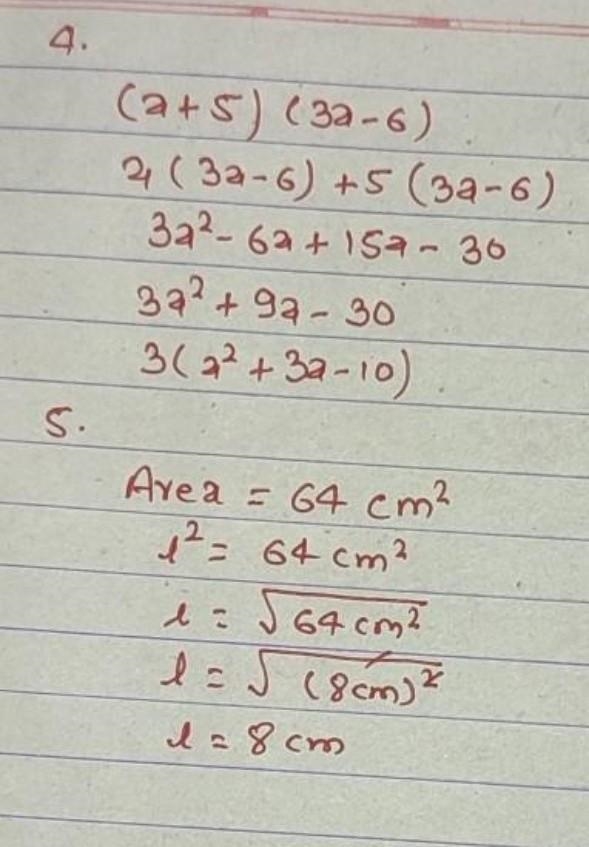 4.
(a+5) (3a-6)
a(3a-6) +5 (3a-6)
3a²- 6a + 15a - 30
3a² + 9a - 30
3(a² + 3a-10)
5.
Area = 64 cm²
l² = 64 cm²
l = √64 cm²
l = √(8cm)²
l = 8 cm